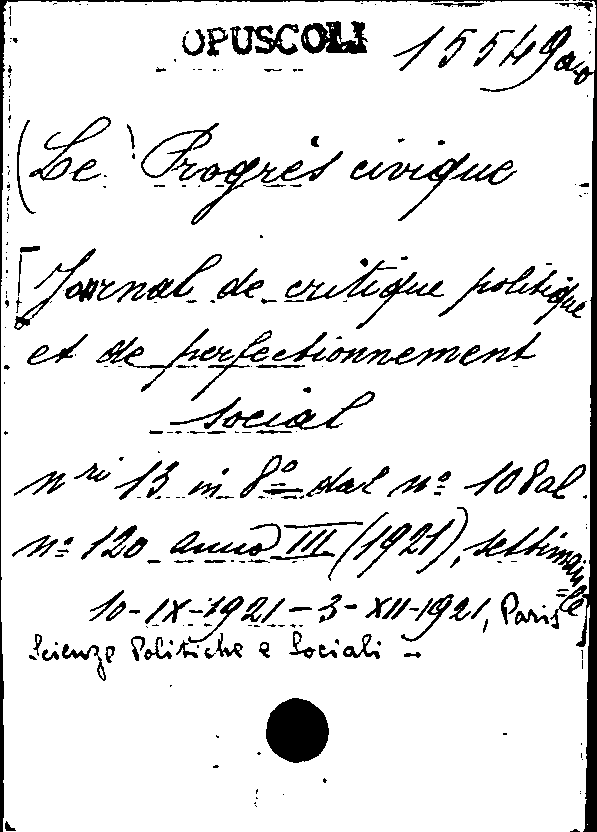 OPUSCOLI 15549
(Le Progrès civique
[Journal de critique politique
et de perfectionnement
social
nri 13 in 8º dal nº 108 al
nº 120 anno III (1921), settimanale
10-IX-1921 - 3-XII-1921, Paris
Scienze Politiche e Sociali -